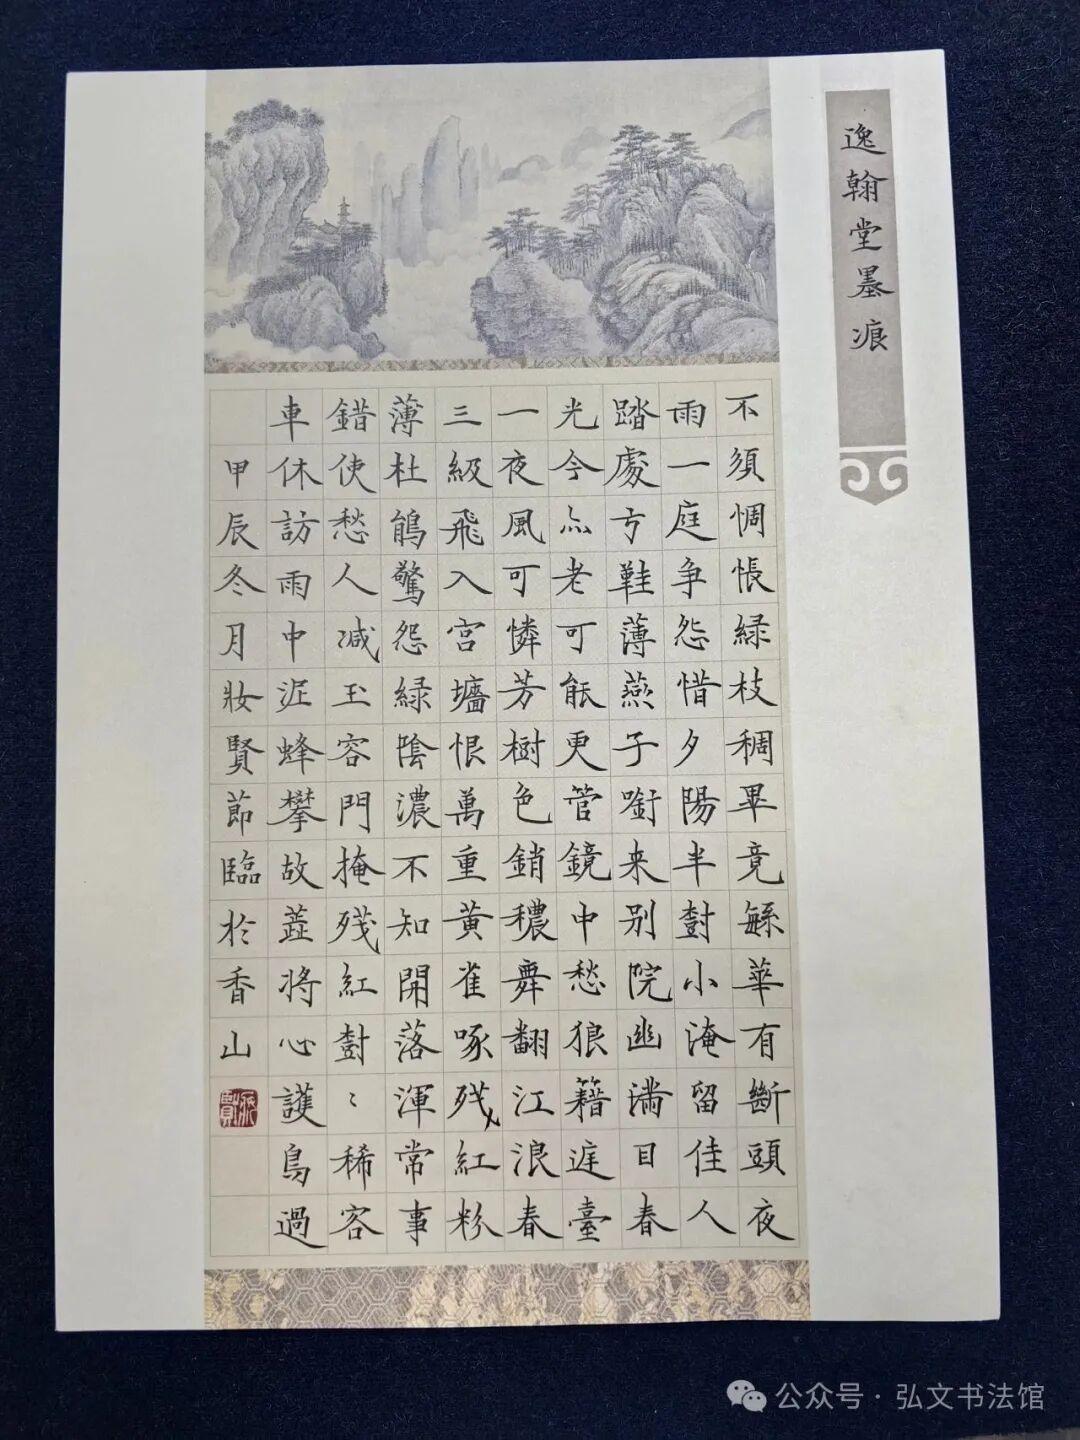 逸翰堂墨痕
不須惆悵緑枝稠畢竟緐華有斷頭夜
雨一庭争怨惜夕陽半對小淹留佳人
踏處弓鞋薄燕子銜来别院幽满目春
光今亦老可能更管鏡中愁狼籍庭臺
一夜風可憐芳樹色銷穠舞翻江浪春
三級飛入宫墻恨萬重黄雀啄残紅粉
薄杜鵑驚怨緑陰濃不知開落渾常事
錯使愁人减玉容門掩残紅對〻稀客
車休訪雨中泥蜂攀故蕋將心護鳥過
甲辰冬月妝賢節臨於香山
公众号·弘文书法馆